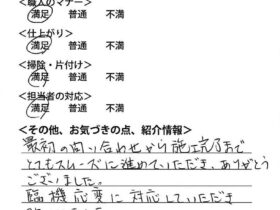 <職人のマナー>
満足 普通 不満
<仕上がり>
満足 普通 不満
<掃除・片付け>
満足 普通 不満
<担当者の対応>
満足 普通 不満
<その他、お気づきの点、紹介情報>
最初の問い合わせから施工完了まで
とてもスムーズに進めていただき、ありがとう
ございました。
臨機応変に対応していただき